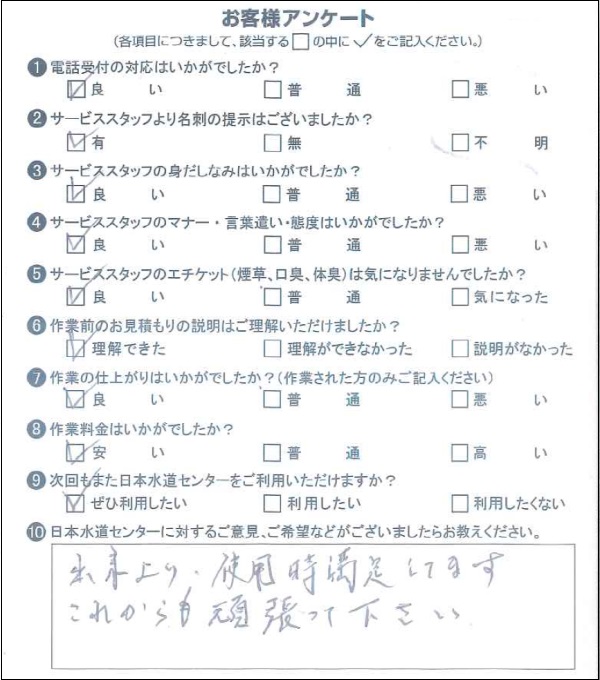 お客様アンケート
(各項目につきまして、該当する□の中に✓をご記入ください。)
❶電話受付の対応はいかがでしたか?
☑良い □普通 □悪い
❷サービススタッフより名刺の提示はございましたか?
☑有 □無 □不明
❸サービススタッフの身だしなみはいかがでしたか?
☑良い □普通 □悪い
❹サービススタッフのマナー・言葉遣い・態度はいかがでしたか?
☑良い □普通 □悪い
❺サービススタッフのエチケット(煙草、口臭、体臭)は気になりませんでたか?
☑良い □普通 □気になった
❻作業前のお見積もりの説明はご理解いただけましたか?
☑理解できた □理解ができなかった □説明がなかった
❼作業の仕上がりはいかがでしたか?(作業された方のみご記入ください)
☑良い □普通 □悪い
❽作業料金はいかがでしたか?
☑安い □普通 □高い
❾次回もまた日本水道センターをご利用いただけますか?
☑ぜひ利用したい □利用したい □利用したくない
❿日本水道センターに対するご意見、ご希望などがございましたらお教えください。
より・使用時満足してます
これからも頑張って下さい